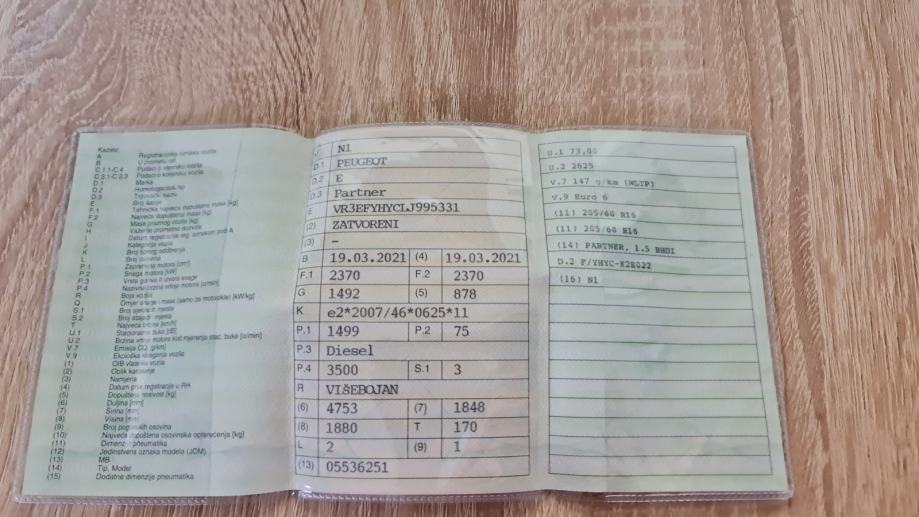 Kazalo:
A Registracijska oznaka vozila
B U prometu od
C.1.1-C.4 Podaci o vlasniku vozila
C.3.1-C.3.3 Podaci o korisniku vozila
D.1 Marka
D.2 Homologacijski tip
D.3 Trgovački naziv
E Broj šasije
F.1 Tehnička najveća dopuštena masa [kg]
F.2 Najveća dopuštena masa [kg]
G Masa praznog vozila [kg]
H Važenje prometne dozvole
I Datum registracije reg. oznakom pod A
J Kategorija vozila
K Broj tipnog odobrenja
L Broj osovina
P.1 Zapremina motora [cm³]
P.2 Snaga motora [kW]
P.3 Vrsta goriva ili izvora snage
P.4 Nazivna brzina vrtnje motora [o/min]
R Boja vozila
Q Omjer snage i mase (samo za motocikle) [kW/kg]
S.1 Broj sjedećih mjesta
S.2 Broj stajaćih mjesta
T Najveća brzina [km/h]
U.1 Stacionarna buka [dB]
U.2 Brzina vrtnje motora kod mjerenja stac. buke [o/min]
V.7 Emisija CO₂ [g/km]
V.9 Ekološka kategorija vozila
(1) OIB vlasnika vozila
(2) Oblik karoserije
(3) Namjena
(4) Datum prve registracije u RH
(5) Dopuštena nosivost [kg]
(6) Duljina [mm]
(7) Širina [mm]
(8) Visina [mm]
(9) Broj pogonskih osovina
(10) Najveća dopuštena osovinska opterećenja [kg]
(11) Dimenzije pneumatika
(12) Jedinstvena oznaka modela (JOM)
(13) MB
(14) Tip, Model
(15) Dodatne dimenzije pneumatika
J N1
D.1 PEUGEOT
D.2 E
D.3 Partner
E VR3EFYHYCLJ995331
(2) ZATVORENI
(3) –
B 19.03.2021 (4) 19.03.2021
F.1 2370 F.2 2370
G 1492 (5) 878
K e2*2007/46*0625*11
P.1 1499 P.2 75
P.3 Diesel
P.4 3500 S.1 3
R VIŠEBOJAN
(6) 4753 (7) 1848
(8) 1880 T 170
L 2 (9) 1
(13) 05536251
U.1 73,00
U.2 2625
V.7 147 g/km (WLTP)
V.9 Euro 6
(11) 205/60 R16
(11) 205/60 R16
(14) PARTNER, 1.5 BHDI
D.2 F/YHYC-K2E022
(16) N1